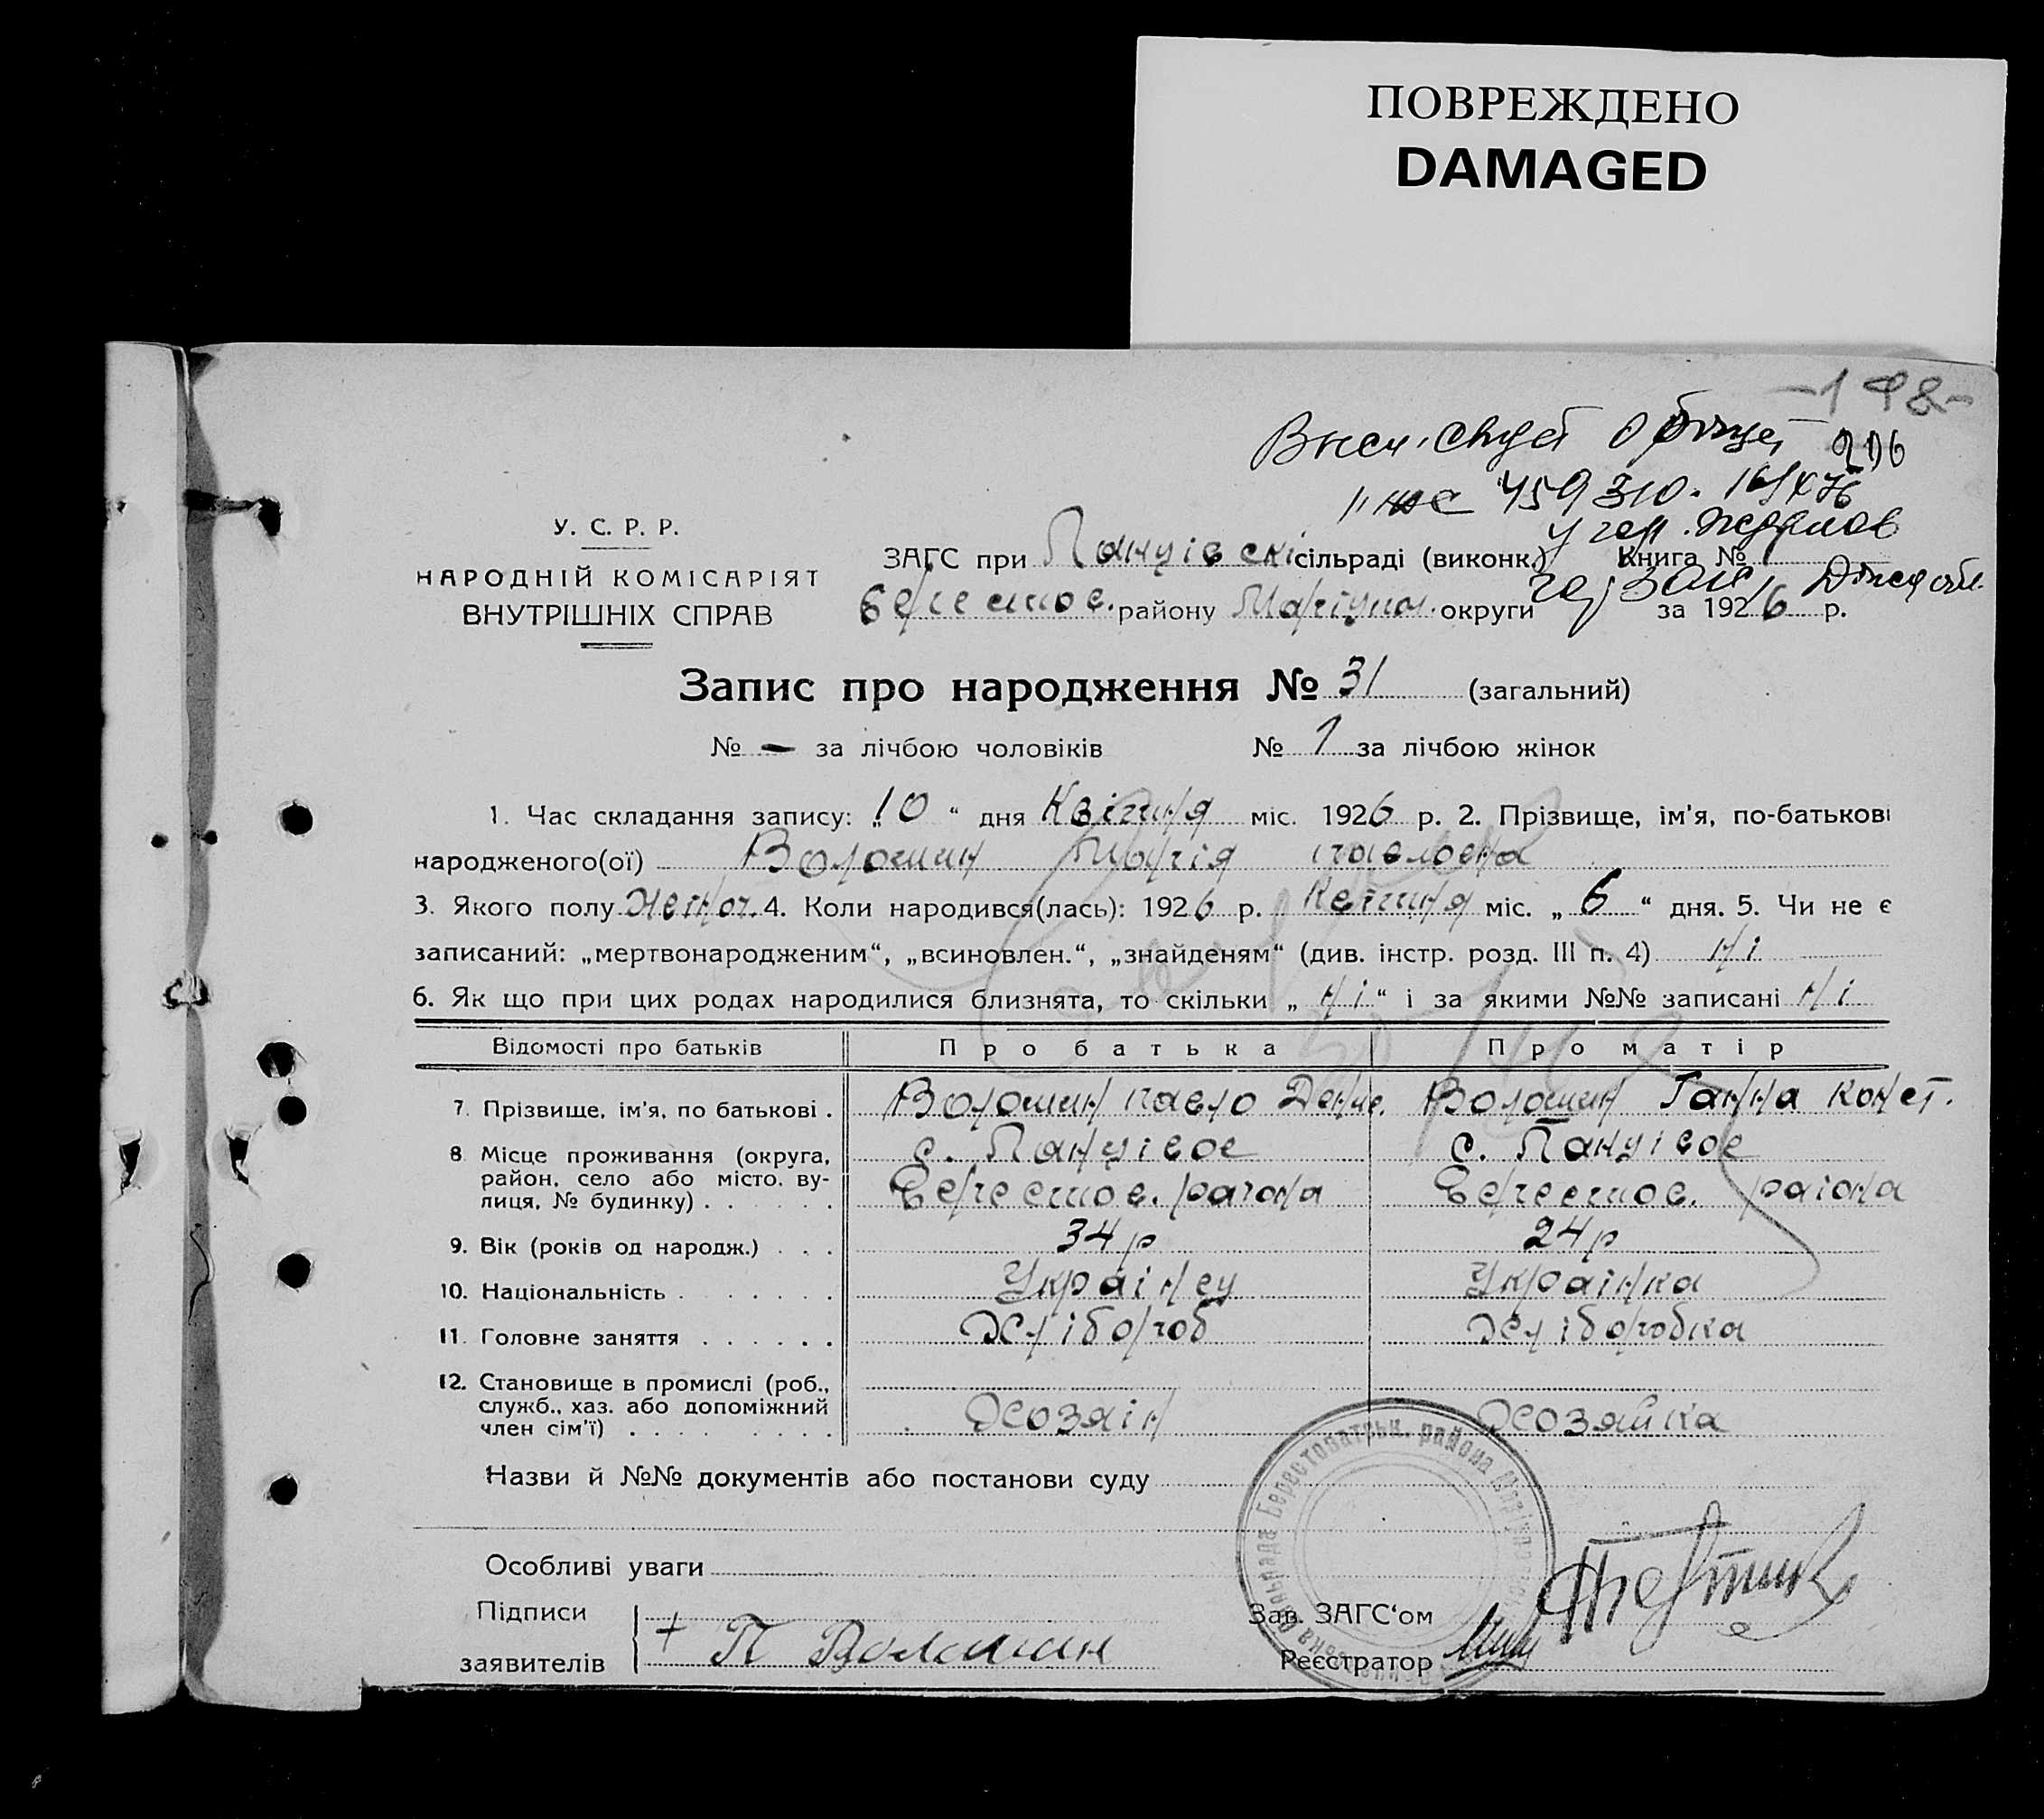 ПОВРЕЖДЕНО
DAMAGED
-198-
206
У. С. Р. Р.
НАРОДНІЙ КОМІСАРІЯТ
ВНУТРІШНІХ СПРАВ
ЗАГС при сільраді (виконк.) Книга №
Берестов. району Маріуп. округи за 1926 р.
Запис про народження № 31 (загальний)
№ — за лічбою чоловіків № 1 за лічбою жінок
1. Час складання запису: „10“ дня Квітня міс. 1926 р. 2. Прізвище, ім'я, по-батькові
народженого(ої) Волошин Марія Павловна
3. Якого полу женоч. 4. Коли народився(лась): 1926 р. Квітня міс. „6“ дня. 5. Чи не є
записаний: „мертвонародженим“, „всиновлен.“, „знайденям“ (див. інстр. розд. III п. 4) Ні
6. Як що при цих родах народилися близнята, то скільки „Ні“ і за якими №№ записані Ні
Відомості про батьків Про батька Про матір
7. Прізвище, ім'я, по батькові . Волошин Павло Волошин Ганна Конст.
8 Місце проживання (округа,
район, село або місто, вулиця, № будинку) . . . . . . с.
Берестов. раіона Берестов. раіона
9. Вік (років од народж.) . . . 34 р 24 р
10. Національність . . . . . . . Украінец Украінка
11. Головне заняття . . . . . . Хлібороб Хліборобка
12. Становище в промислі (роб.,
служб., хаз. або допоміжний
член сім'ї) . . . . . . . . . Хозяін Хозяйка
Назви й №№ документів або постанови суду
Особливі уваги
Підписи
заявителів + П Волошин
Зав. ЗАГС'ом
Реєстратор